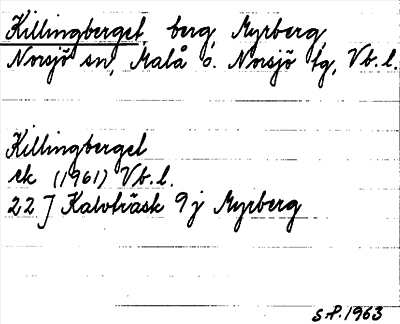 Killingberget, berg, Myrberg,
Norsjö sn, Malå o. Norsjö tg, Vb.l.
Killingberget
ek (1961) Vb.l.
22 J Kalvträsk 9j Myrberg
S.P. 1963